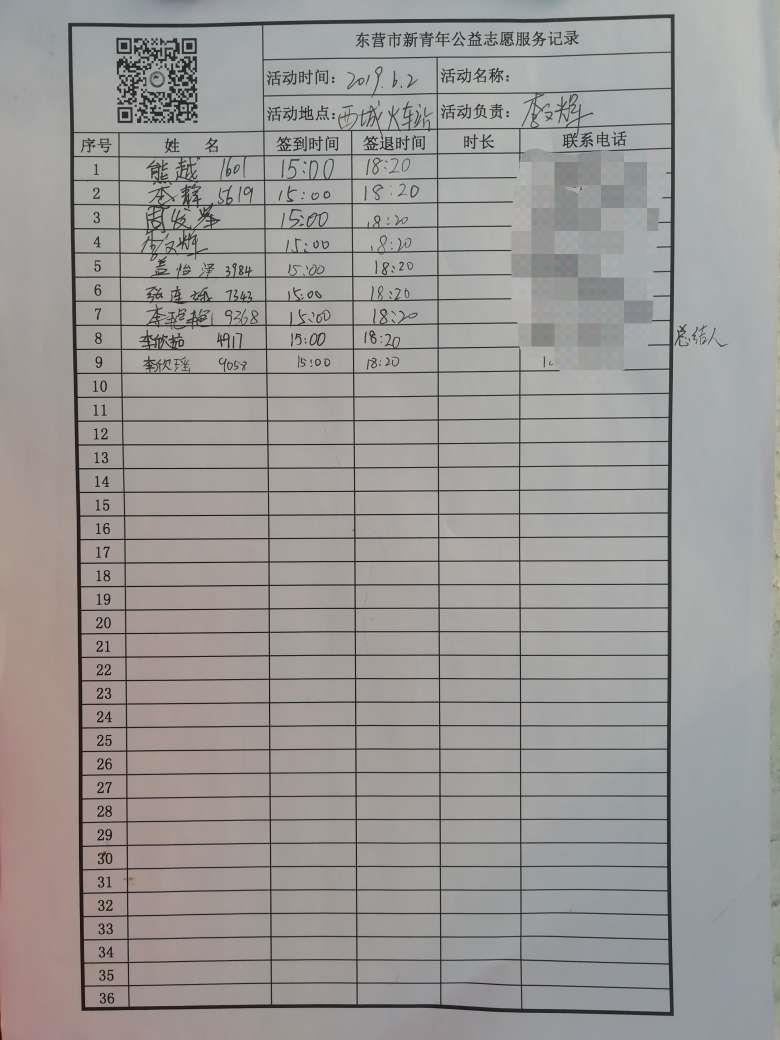 东营市新青年公益志愿服务记录
活动时间：2019.6.2 活动名称：
活动地点：西城火车站 活动负责：李文辉
序号 姓 名 签到时间 签退时间 时长 联系电话
1 熊越 1601 15:00 18:20
2 5619 15:00 18:20
3 周发举 15:00 18:20
4 李文辉 15:00 18:20
5 盖怡泽 3984 15:00 18:20
6 张连娥 7343 15:00 18:20
7 李艳艳 9368 15:00 18:20
8 李欣茹 4917 15:00 18:20 总结人
9 李欣瑶 9058 15:00 18:20
10
11
12
13
14
15
16
17
18
19
20
21
22
23
24
25
26
27
28
29
30
31
32
33
34
35
36